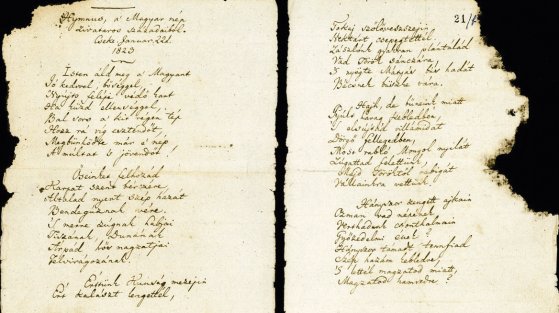 Hymnus, a' Magyar nép
zivataros századaiból.
Cseke, Januar. 22d.
1823
Isten áldd meg a' Magyart
Jó kedvvel, bőséggel,
Nyújts feléje védő kart
Ha küzd ellenséggel,
Bal sors a' kit régen tép
Hozz rá víg esztendőt,
Megbűnhődte már e' nép
A' múltat 's jövendőt!
Őseinket felhozád
Karpat szent bérczére,
Általad nyert szép hazát
Bendegúznak vére.
'S merre zúgnak habjai
Tiszának, Dunának,
Árpád' hős magzatjai
Felvirágozának.
Értünk Kunság' mezején
Ért kalászt lengettél,
21/
Tokaj szőlővesszején
Nektárt csepegtettél.
Zászlónk gyakran plántálád
Vad Török' sánczára
'S nyögte Mátyás' bús hadát
Bécsnek büszke vára.
Hajh, de bűneink miatt
Gyúlt harag kebledben,
'S elsújtád villámidat
Dörgő fellegedben,
Most rabló Mongol nyilát
Zúgattad felettünk,
Majd Töröktől rabigát
Vállainkra vettünk.
Hányszor zengett ajkain
Ozman vad népének
Vert hadunk csonthalmain
Győzedelmi ének!
Hányszor támadt tenfiad
Szép hazám kebledre,
'S lettél magzatod miatt
Magzatod hamvvedre?